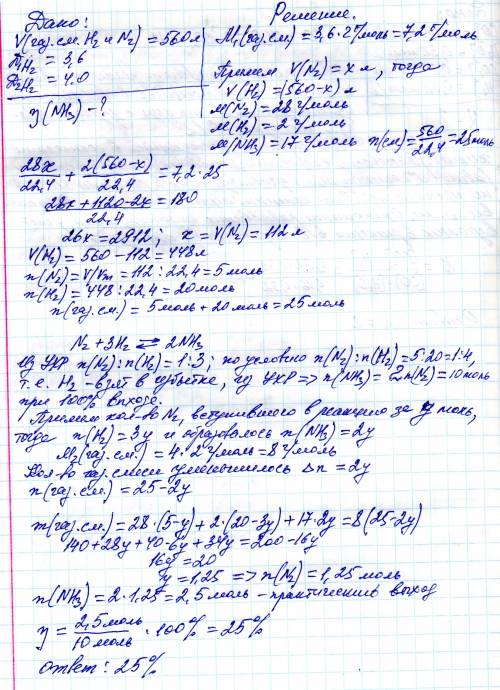 Дано:
V(газ.см. H₂ и N₂) = 560л
Д₁H₂ = 3,6
Д₂H₂ = 4,0
η(NH₃) - ?
Решение.
M₁(газ.см.) = 3,6·2 г/моль = 7,2 г/моль
Примем V(N₂) = x л, тогда
V(H₂) = (560-x) л
M(N₂) = 28 г/моль
M(H₂) = 2 г/моль
M(NH₃) = 17 г/моль n(см) = 560/22,4 = 25 моль
28x/22,4 + 2(560-x)/22,4 = 7,2·25
(28x + 1120 - 2x)/22,4 = 180
26x = 2912; x = V(N₂) = 112 л
V(H₂) = 560 - 112 = 448 л
n(N₂) = V/Vm = 112 : 22,4 = 5 моль
n(H₂) = 448 : 22,4 = 20 моль
n(газ.см.) = 5 моль + 20 моль = 25 моль
N₂ + 3H₂ ⇄ 2NH₃
Из УХР n(N₂) : n(H₂) = 1:3; по условию n(N₂) : n(H₂) = 5:20 = 1:4,
т.е. H₂ - взят в избытке, из УХР => n(NH₃) = 2n(N₂) = 10 моль
при 100% выходе.
Примем кол-во N₂, вступившего в реакцию за y моль,
тогда n(H₂) = 3y и образовалось n(NH₃) = 2y
M₂(газ.см.) = 4·2 г/моль = 8 г/моль
Кол-во газ.смеси уменьшилось Δn = 2y
n(газ.см.) = 25 - 2y
m(газ.см.) = 28·(5-y) + 2·(20-3y) + 17·2y = 8(25-2y)
140 + 28y + 40 - 6y + 34y = 200 - 16y
16y = 20
y = 1,25 => n(N₂) = 1,25 моль
n(NH₃) = 2·1,25 = 2,5 моль - практический выход
η = 2,5 моль/10 моль · 100% = 25%
Ответ: 25%